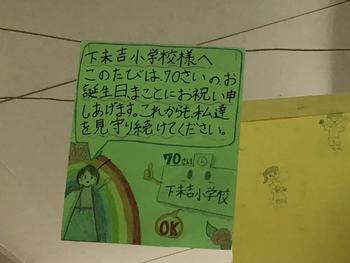 下末吉小学校様へ
このたびは、70さいのお
誕生日まことにお祝い申
しあげます。これからも、私達
を見守り続けてください。
70さい
下末吉小学校
OK